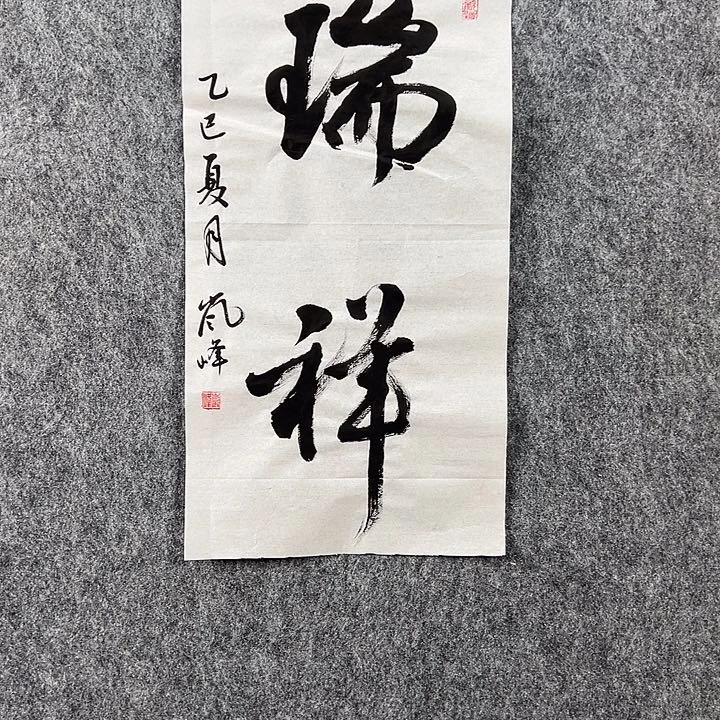 瑞祥
乙巳夏月 岚峰